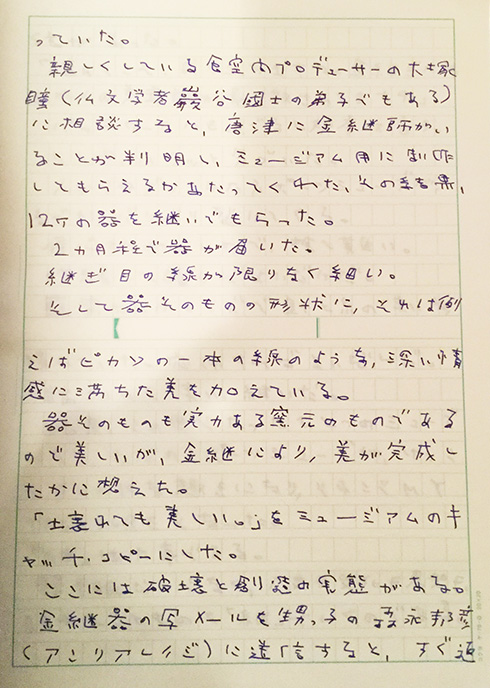 っていた。
親しくしている食空間プロデューサーの大塚
瞳（仏文学者巖谷國士の弟子でもある）
に相談すると、唐津に金継師がい
ることが判明し、ミュージアム用に制作
してもらえるかあたってくれた、その結果、
12ヶの器を継いでもらった。
2カ月程で器が届いた。
継ぎ目の線が限りなく細い。
そして器そのものの形状に、それは例
えばピカソの一本の線のような、深い情
感に満ちた美を加えている。
器そのものも実力ある窯元のものである
ので美しいが、金継により、美が完成し
たかに想えた。
「壊れても美しい。」をミュージアムのキ
ャッチ・コピーにした。
ここには破壊と創造の実態がある。
金継器の写メールを甥っ子の森永邦彦
（アンリアレイジ）に送信すると、すぐ返